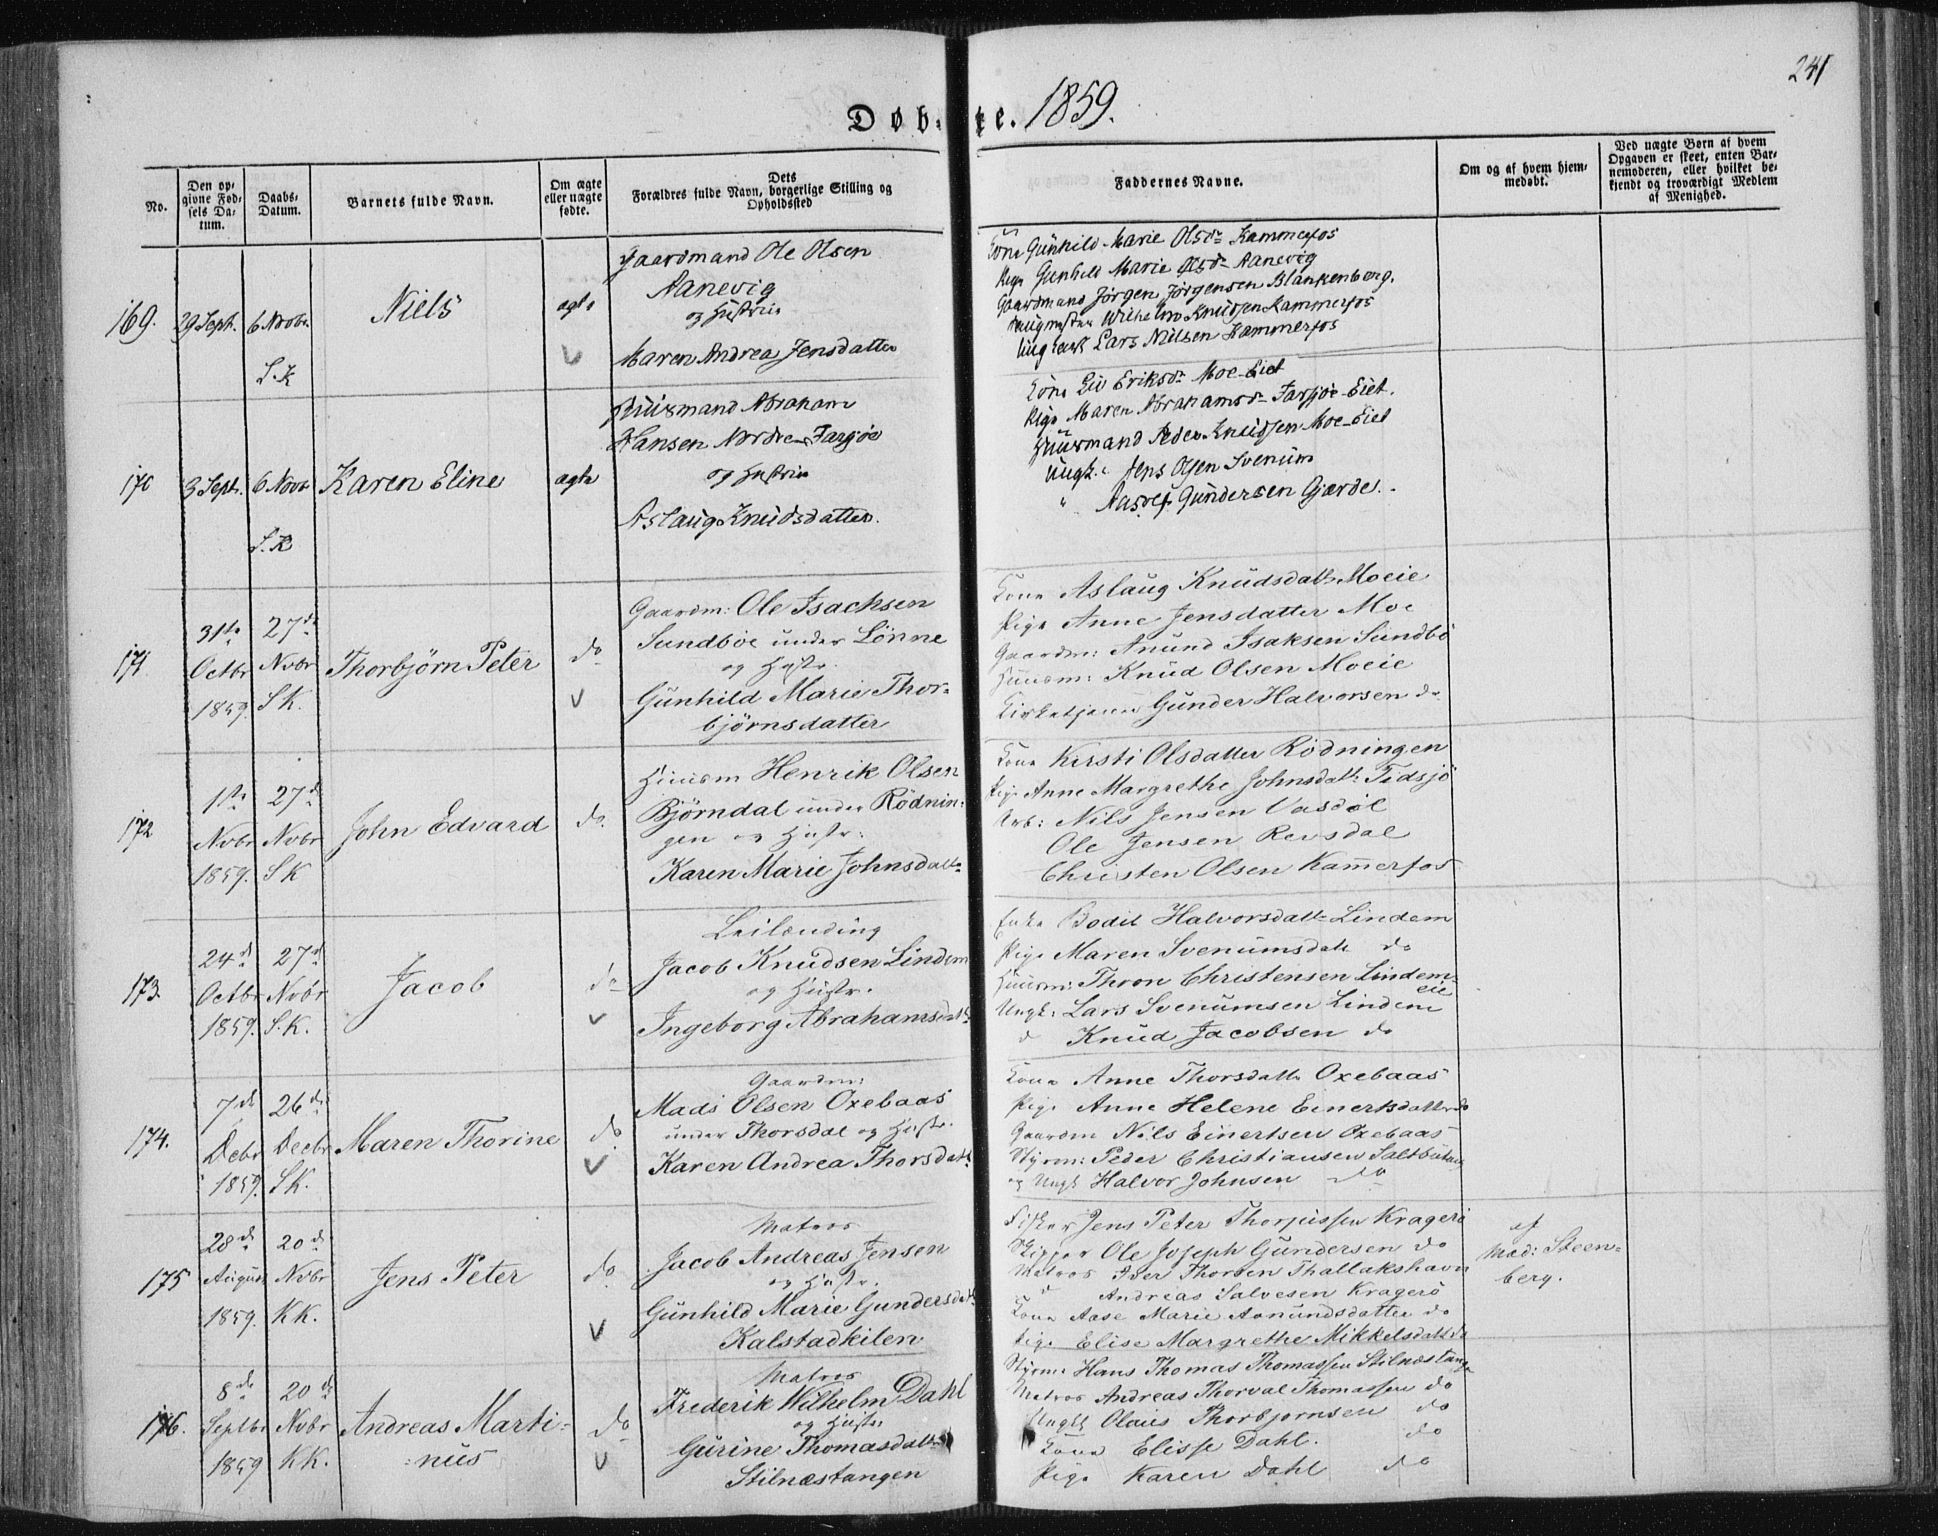 241
Døbte. 1859.
No.
Den opgivne Fødsels Datum.
Daabs-Datum.
Barnets fulde Navn.
Om ægte eller uægte fødte.
Dets Forældres fulde Navn, borgerlige Stilling og Opholdssted
Faddernes Navne.
Om og af hvem hjemmedøbt.
Ved uægte Børn af hvem Opgaven er skeet, enten Barnemoderen, eller hvilket bekjendt og troværdigt Medlem af Menighed.
169. 29 Sept. 6 Novbr. S.K
Niels
ægte
Gaardmand Ole Olsen
Aanevig
og Hustru
Maren Andrea Jensdatter
Kone Gunhild Marie Olsdr Kammerfos
Pige Gunhild Marie Olsdr Aanevig
Gaardmand Jörgen Jörgensen Blankenberg.
Wilhelm Knudsen Kammerfos
Ungkarl Lars Nielsen Kammerfos
170 3 Sept. 6 Novbr S.K
Karen Eline
ægte
Huusmand Abraham
Hansen Nordre Farsjöe
og Hustru
Aslaug Knudsdatter.
Kone Liv Eriksdr Moe-Eiet
Pige Maren Abrahamsdr Farsjöe-Eiet.
Huusmand Peder Knudsen Moe-Eiet
Ungk. Jens Olsen Svenum
" Aasvej Gundersen Gjærde.
171. 31te Octbr 1859. 27de Nvbr S.K.
Thorbjörn Peter
do
Gaardm: Ole Isachsen
Sundböe under Lönne
og Hustr.
Gunhild Marie Thor-
björnsdatter
Kone Aslaug Knudsdattr Moeie
Pige Anne Jensdatter Moe
Gaardm: Anund Isaksen Sundbö
Huusm: Knud Olsen Moeie
Kirketjener Gunder Halvorsen do
172 1ste Nvbr 1859. 27d Nvbr S K
John Edvard
do.
Huusm Henrik Olsen
Björndal under Rödnin-
gen og Hustr:
Karen Marie Johnsdattr
Kone Kirsti Olsdatter Rödningen
Pige Anne Margrethe Johnsdattr Tidsjö
Arb: Nils Jensen Vasdöl
Ole Jensen Revsdal
Christen Olsen Kammerfos
173. 24d Octbr 1859. 27d Nvbr S.K.
Jacob
do
Leilænding
Jacob Knudsen Lindem
og Hustr.
Ingeborg Abrahamsdattr
Enke Bodil Halvorsdattr Lindem
Pige Maren Svenumsdatt do
Huusm: Thron Christensen Lindem-
eie
Ungk: Lars Svenumsen Lindem
d Knud Jacobsen do
174. 7de Decbr 1859. 26de Decbr S.K.
Maren Thorine
do
Gaardm:
Mads Olsen Oxebaas
under Thorsdal og Hustr.
Karen Andrea Thorsdattr
Kone Anne Thorsdattr Oxebaas
Pige Anne Helene Einertsdatter do
Gaardm Nils Einertsen Oxebaas
Styrm: Peder Christiansen Saltbutang
og Ungk Halvor Johnsen do
175 28de August 1859. 20de Nvbr KK.
Jens Peter
do
Matros
Jacob Andreas Jensen
og Hustr.
Gunhild Marie Gundersdattr
Kalstadkilen
Fisker Jens Peter Thorjussen Kragerö
Skipper Ole Joseph Gundersen do
Matros Iver Thorsen Thallakshavn
d Andreas Salvesen Kragerö
Kone Aase Marie Aanundsdatter do
Pige Elise Margrethe Mikkelsdatt do
af
Mad: Steen-
berg.
176. 8de Septbr 1859 20de Nvbr KK.
Andreas Marti-
nus
do
Matros
Frederik Wilhelm Dahl
og Hustr
Gurine Thomasdattr
Stilnæstangen
Styrm: Hans Thomas Thomassen Stilnæstangen
Matros Andreas Thorval Thomassen do
Ungk Olaus Thorbjörnsen do
Kone Elisse Dahl. do
Pige Karen Dahl do